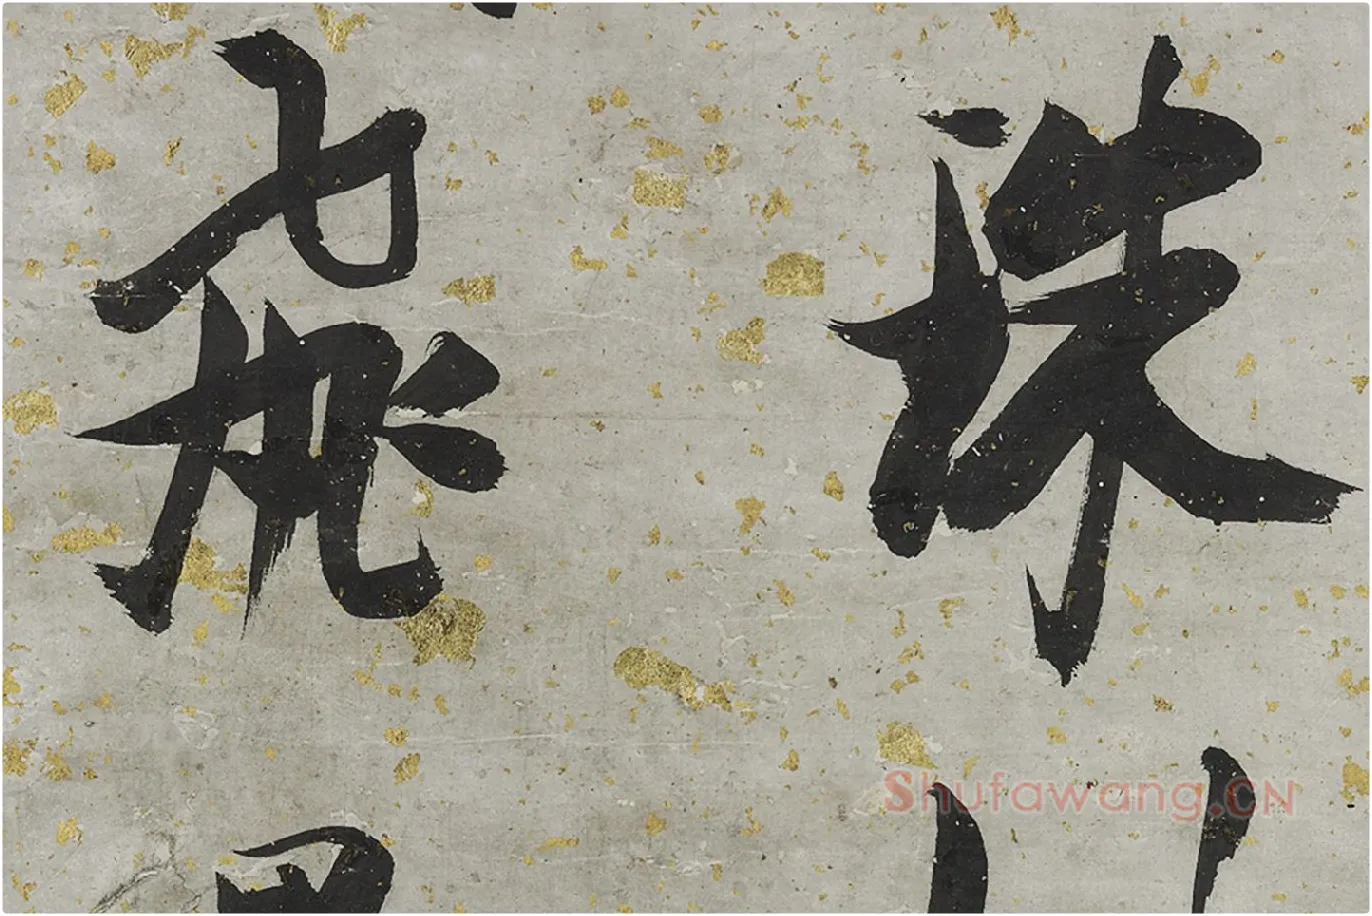 珠
飛
Shufawang.CN